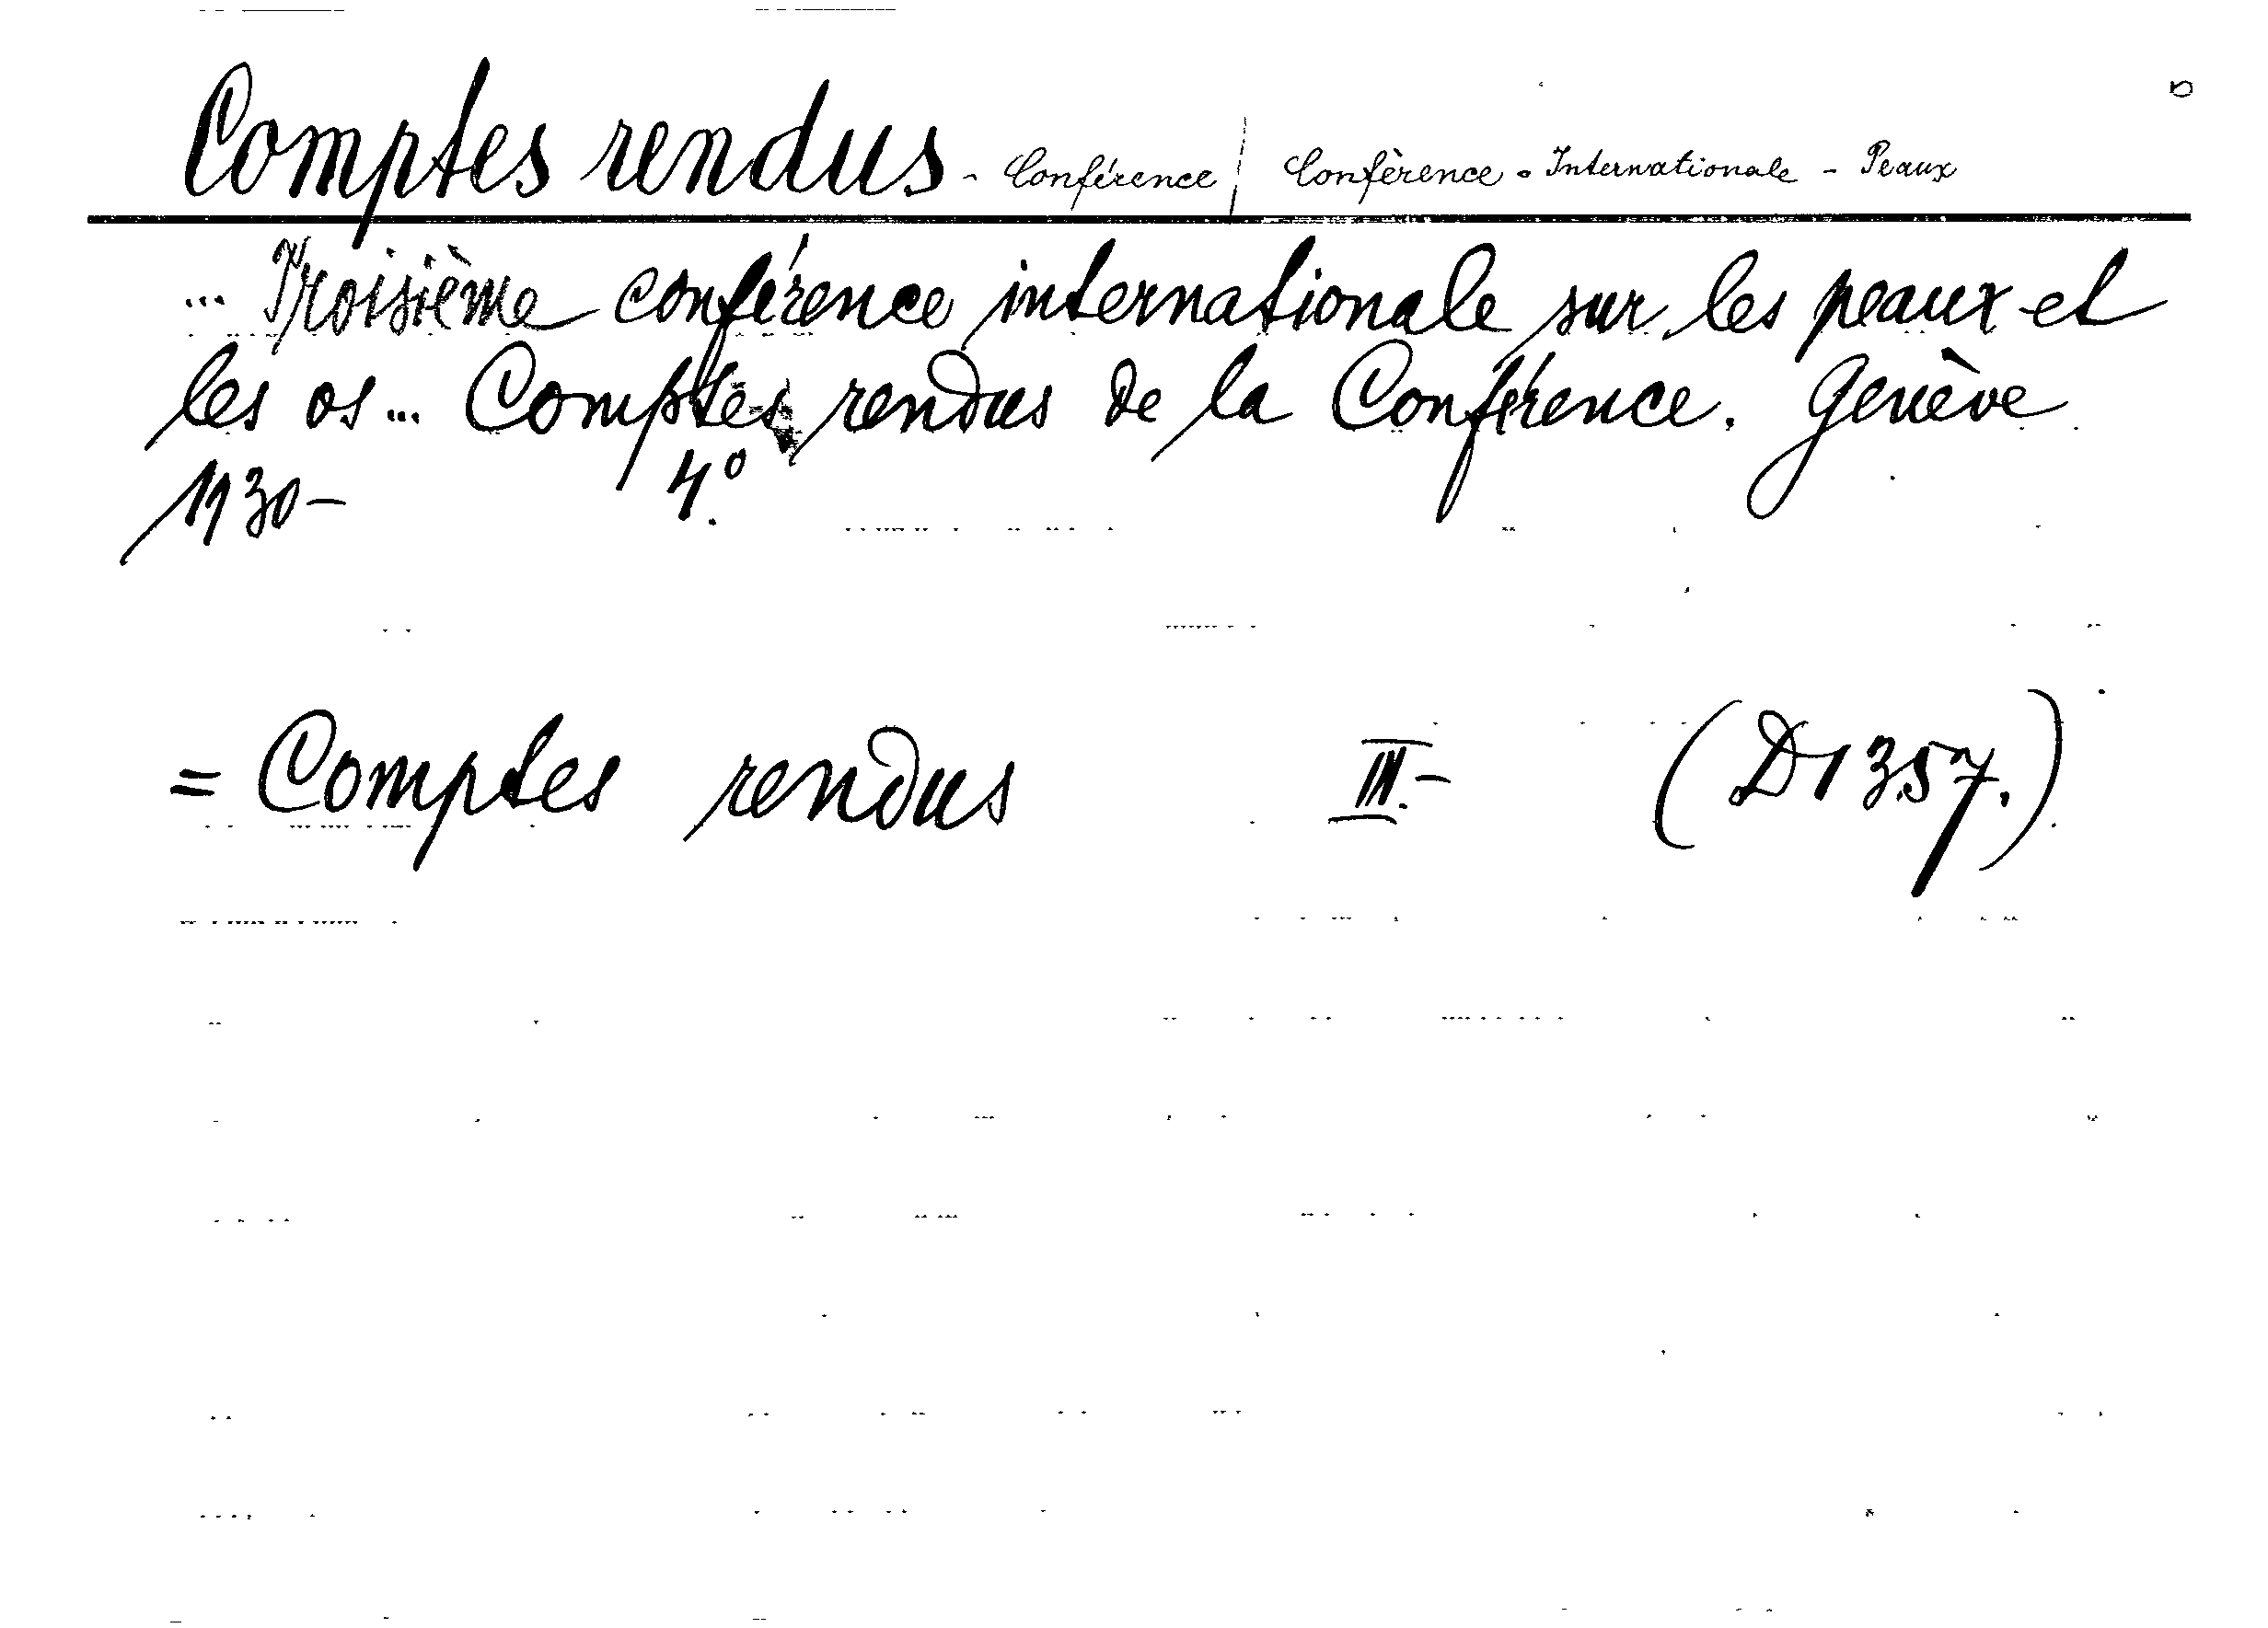 Comptes rendus - Conférence / Conférence - Internationale - Peaux
... Troisième conférence internationale sur les peaux et
les os ... Comptes rendus de la Conférence. Genève
1930 - 4°.
= Comptes rendus III.- (D1357.)